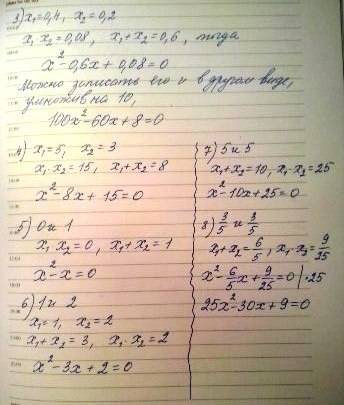 3) x₁=0,4, x₂=0,2
x₁ x₂=0,08, x₁+x₂=0,6, тогда
x²-0,6x+0,08=0
Можно записать его и в другом виде,
умножив на 10,
100x²-60x+8=0
4) x₁=5, x₂=3
x₁·x₂=15, x₁+x₂=8
x²-8x+15=0
5) 0 и 1
x₁ x₂=0, x₁+x₂=1
x²-x=0
6) 1 и 2
x₁=1, x₂=2
x₁+x₂=3, x₁·x₂=2
x²-3x+2=0
7) 5 и 5
x₁+x₂=10, x₁·x₂=25
x²-10x+25=0
8) 3/5 и 3/5
x₁+x₂=6/5, x₁·x₂=9/25
x²-6/5x+9/25=0 |·25
25x²-30x+9=0